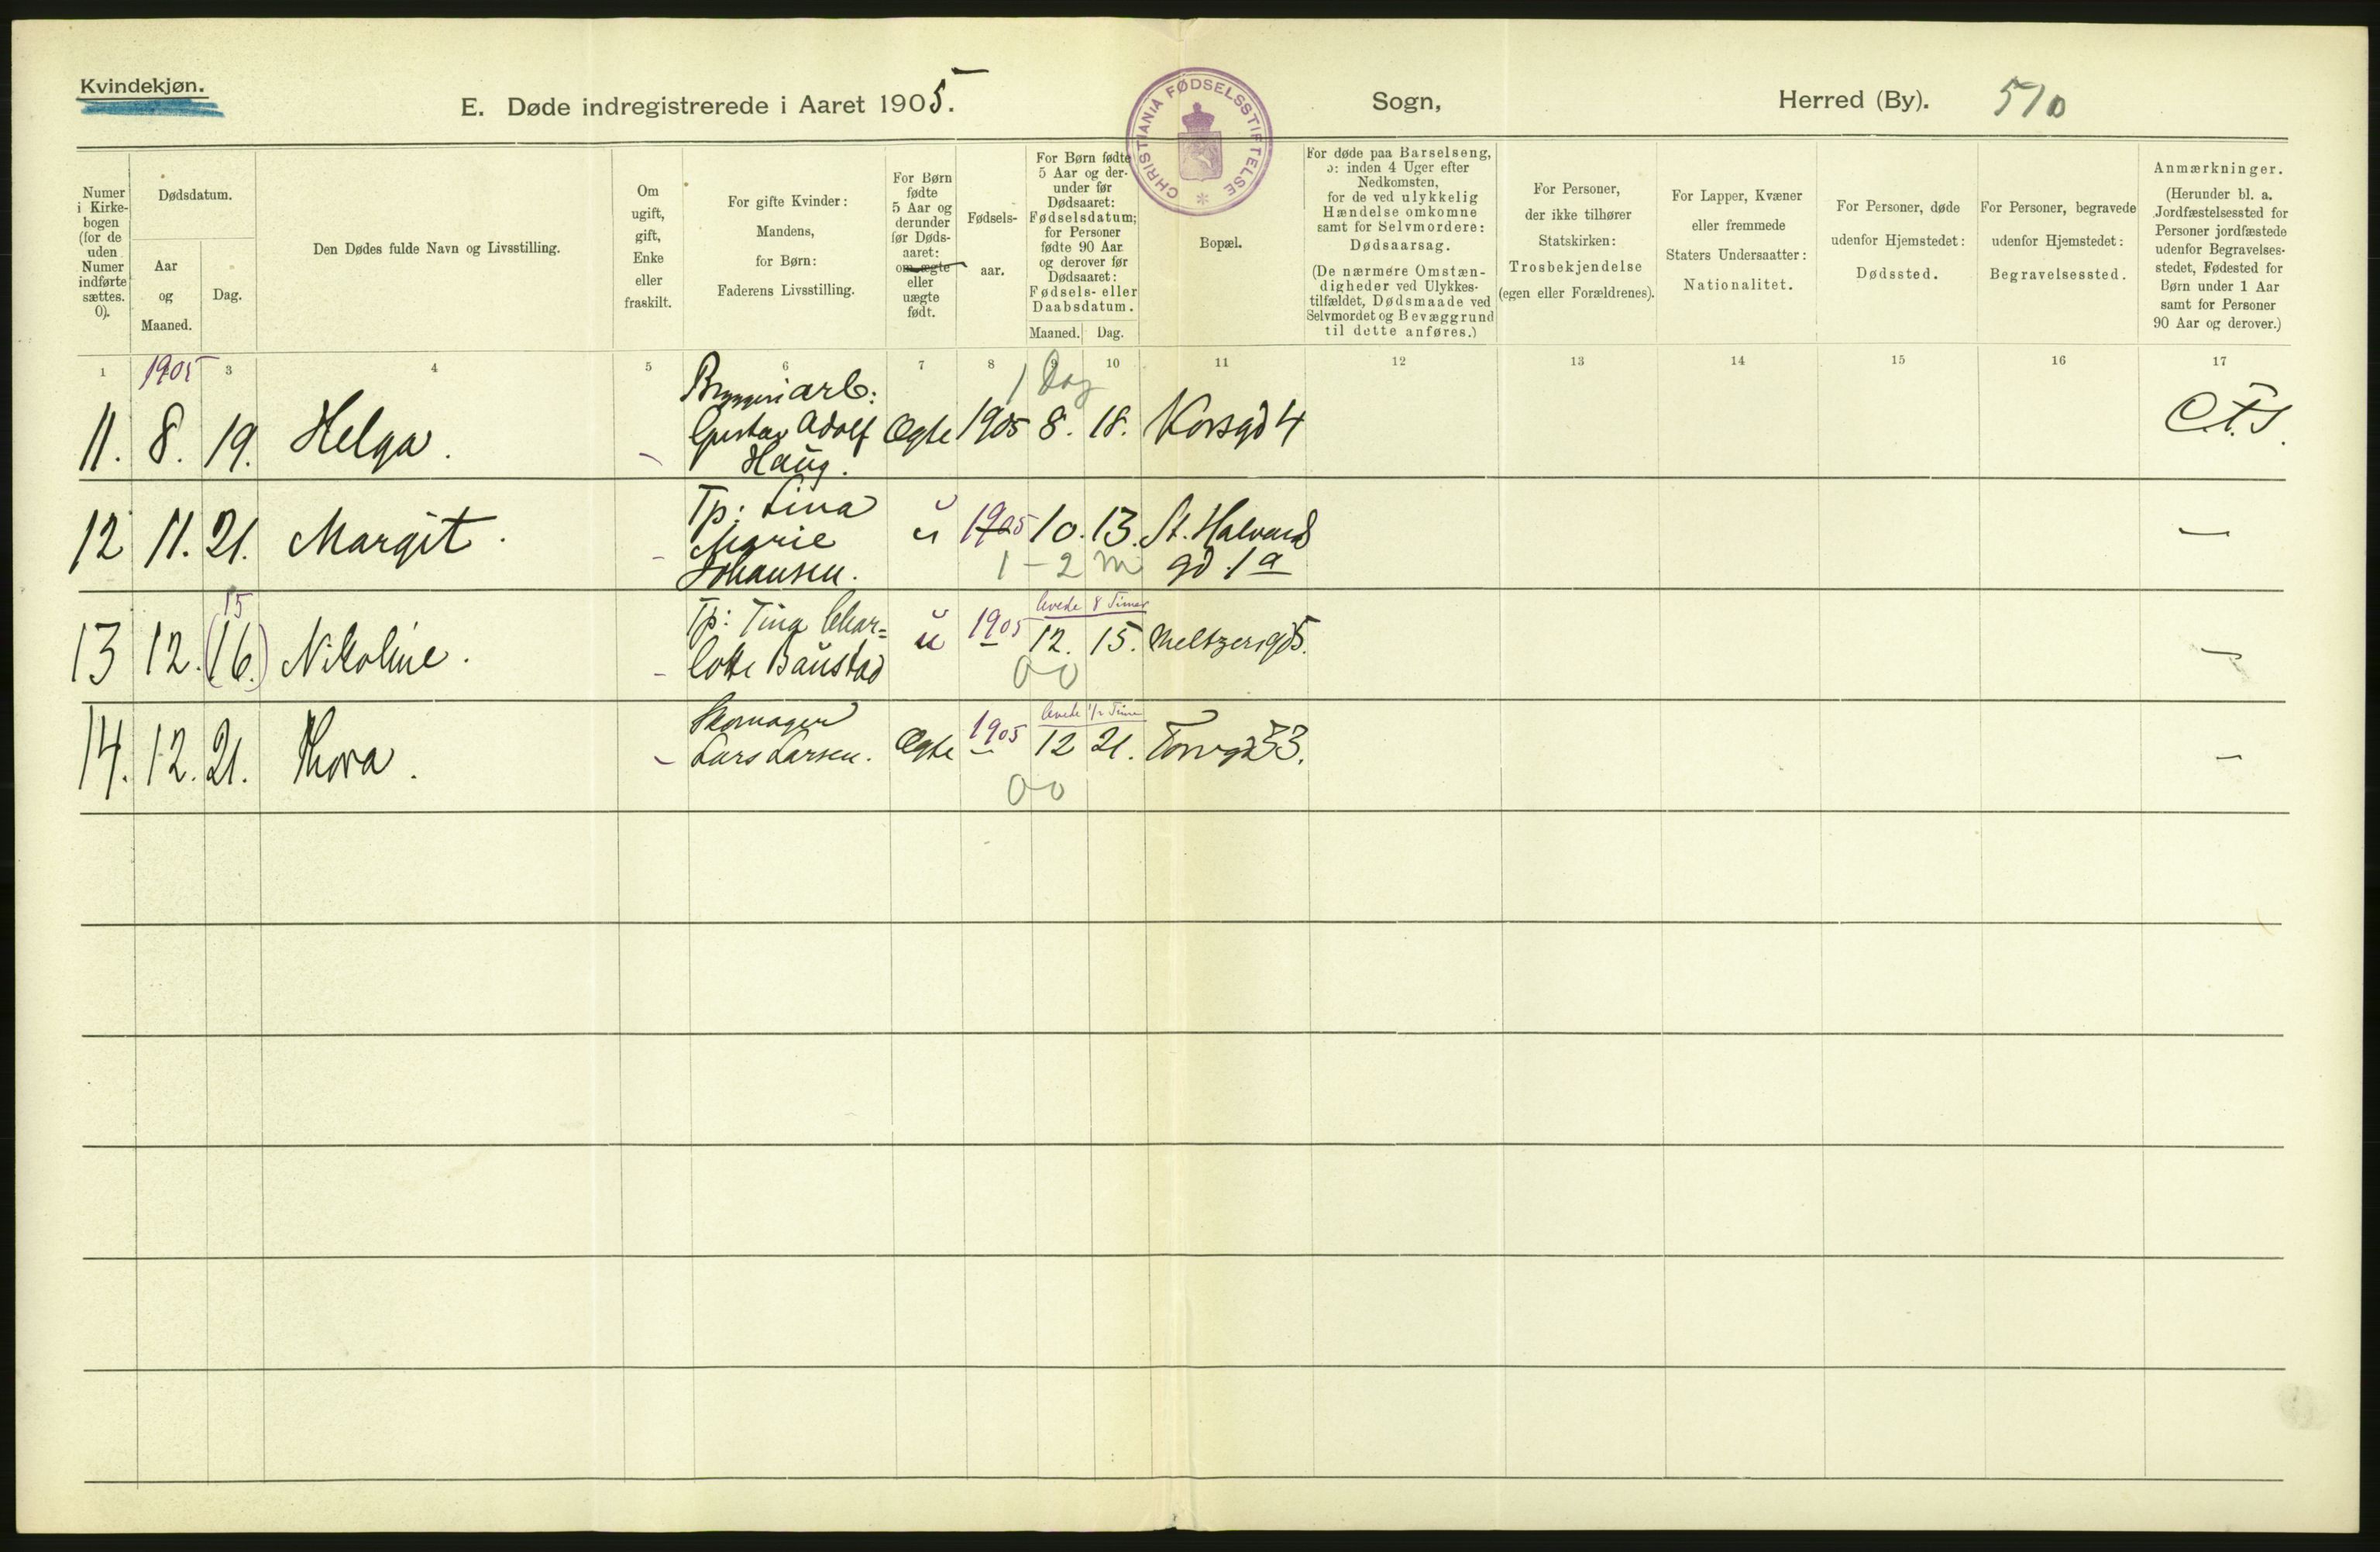 Kvindekjøn.
E. Døde indregistrerede i Aaret 1905.
Sogn,
Herred (By).
510
CHRISTIANIA FØDSELSSTIFTELSE
Numer
i Kirke-
bogen
(for de
uden
Numer
indførte
sættes.
0).
Dødsdatum.
Aar
og
Maaned.
Dag.
Den Dødes fulde Navn og Livsstilling.
Om
ugift,
gift,
Enke
eller
fraskilt.
For gifte Kvinder:
Mandens,
for Børn:
Faderens Livsstilling.
For Børn
fødte
5 Aar og
derunder
før Døds-
aaret:
om ægte
eller
uægte
født.
Fødsels-
aar.
For Børn fødte
5 Aar og der-
under før
Dødsaaret:
Fødselsdatum;
for Personer
fødte 90 Aar
og derover før
Dødsaaret:
Fødsels- eller
Daabsdatum.
Maaned.
Dag.
Bopæl.
For døde paa Barselseng,
ɔ: inden 4 Uger efter
Nedkomsten,
for de ved ulykkelig
Hændelse omkomne
samt for Selvmordere:
Dødsaarsag.
(De nærmere Omstæn-
digheder ved Ulykkes-
tilfældet, Dødsmaade ved
Selvmordet og Bevæggrund
til dette anføres.)
For Personer,
der ikke tilhører
Statskirken:
Trosbekjendelse
(egen eller Forældrenes).
For Lapper, Kvæner
eller fremmede
Staters Undersaatter:
Nationalitet.
For Personer, døde
udenfor Hjemstedet:
Dødssted.
For Personer, begravede
udenfor Hjemstedet:
Begravelsessted.
Anmærkninger.
(Herunder bl. a.
Jordfæstelsessted for
Personer jordfæstede
udenfor Begravelses-
stedet, Fødested for
Børn under 1 Aar
samt for Personer
90 Aar og derover.)
1 1905 3 4 5 6 7 8 9 10 11 12 13 14 15 16 17
1 Dag
Bryggeriarb:
11. 8. 19. Helga. - Gustav Adolf Ægte 1905 8. 18. Korsgd 4
Haug.
Tp: Lina
12 11. 21. Margit. - Marie u 1905 10. 13. St. Halvards
Johansen. 1 - 2 m gd. 1a —
15 levede 8 Timer
13 12. (16.) Nikoline. - Tp: Tina Char= u 1905 12. 15. Meltzersgd 5. —
lotte Baustad 00
Skomager levede 1/2 Time
14. 12. 21. Thora. - Lars Larsen. Ægte 1905 12 21. Torvgd 33. —
00